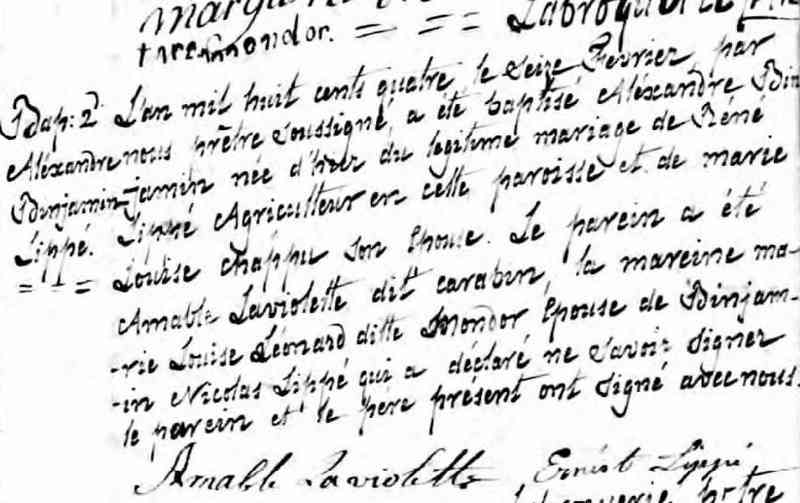 Labroquerie
Mondor.
Bap: 2d L'an mil huit cents quatre le seize Fevrier, par
Aléxandre nous prêtre soussigné, a été baptisé Aléxandre Bin
Binjamin -jamin née d'hier du légitime mariage de Réné
Lippé. Lippé Agriculteur en cette paroisse et de marie
Louise chappu son Epouse. Le parein a été
Amable Laviolette dit carabin, la mareine ma-
-rie Louise Léonard ditte Mondor Épouse de Binjam-
-in Nicolas Lippé qui a déclaré ne savoir signer
le parein et le pére présent ont signé avec nous.
Amable Laviolette Ernest Lippé